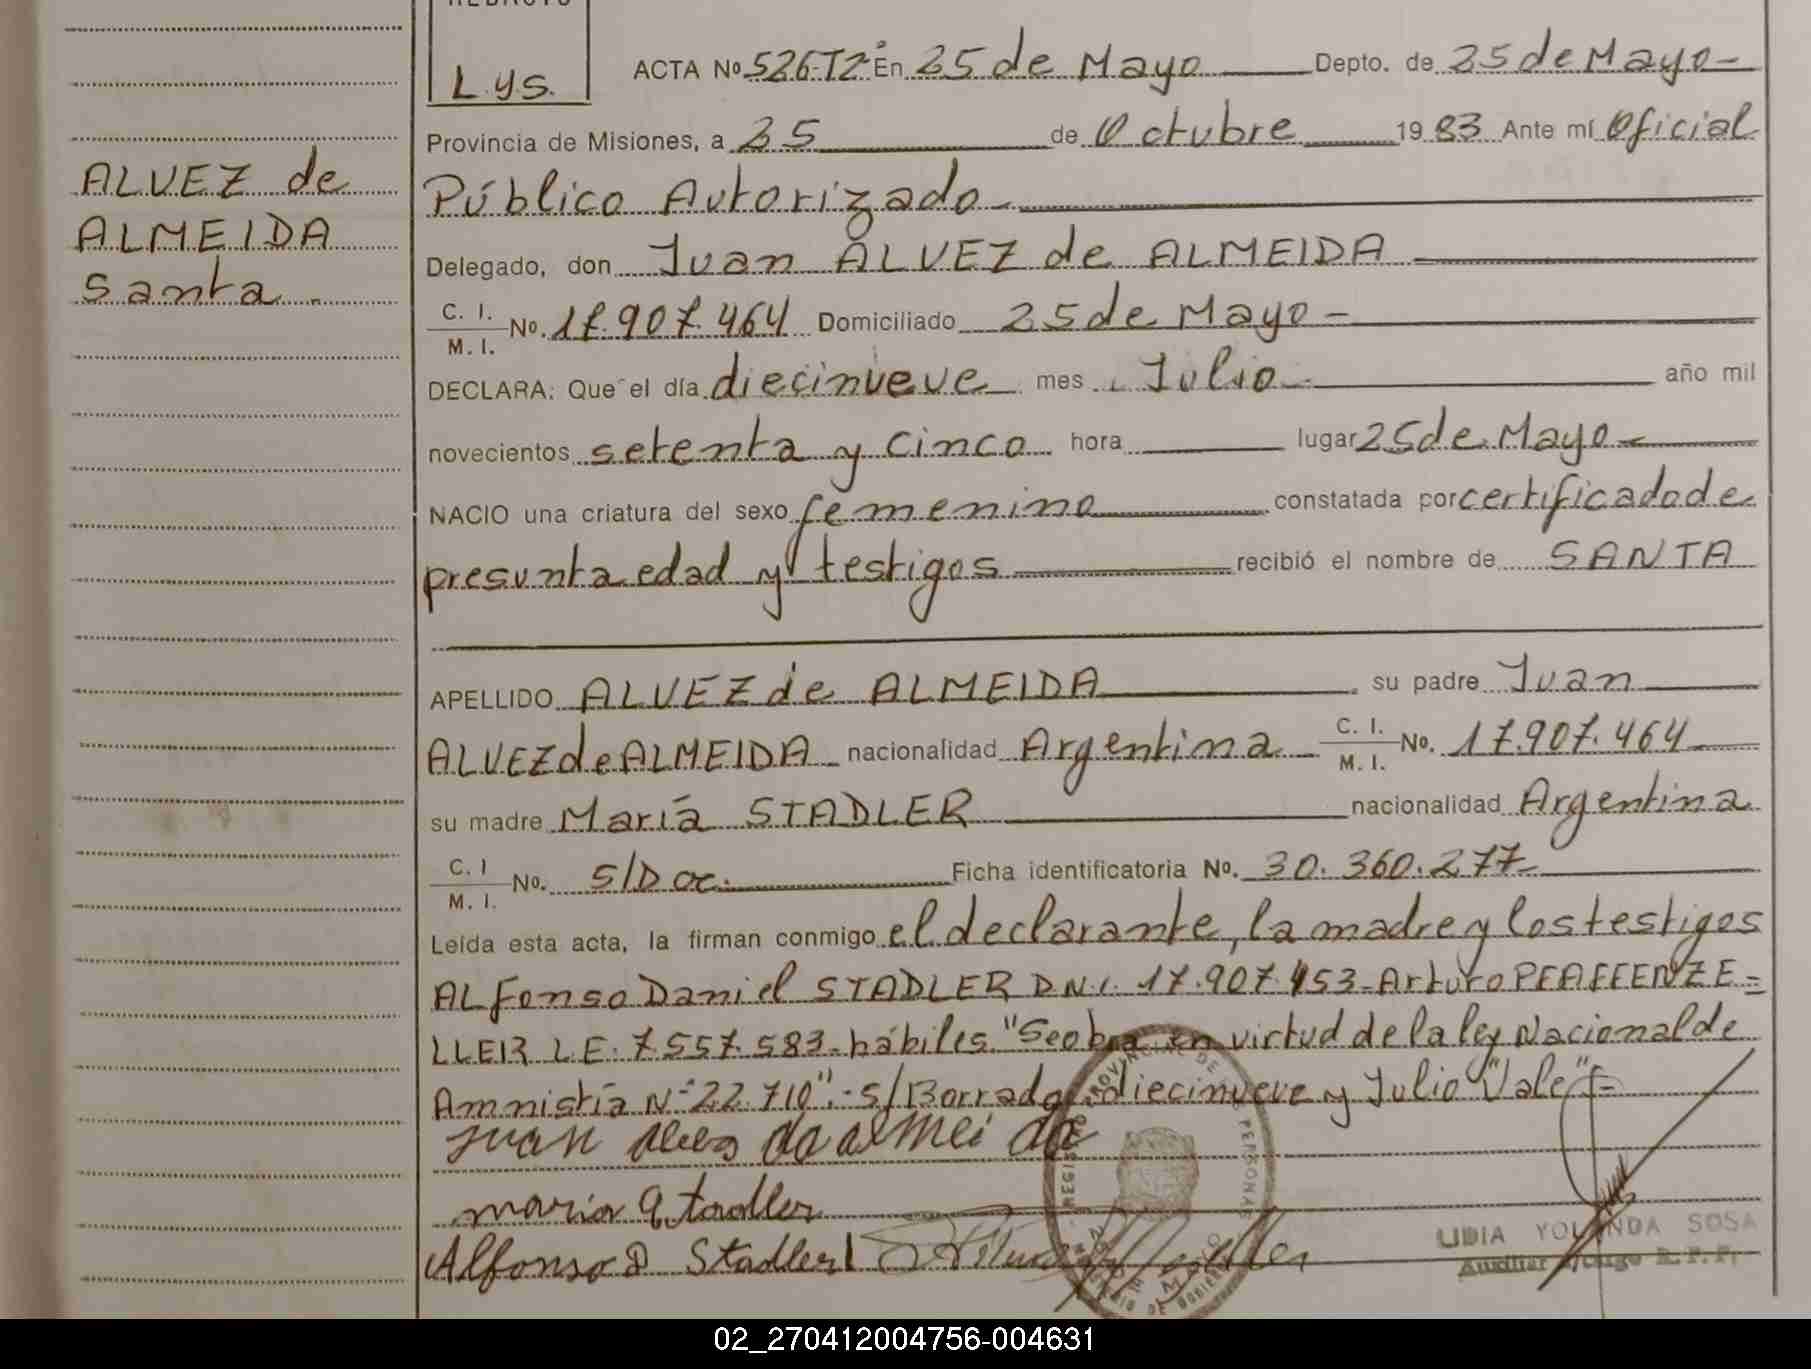 Lys.
ACTA Nº 526-T2º En 25 de Mayo Depto. de 25 de Mayo-
Provincia de Misiones, a 25 de Octubre 1983 Ante mí Oficial
Público Autorizado-
Delegado, don Juan ALVEZ de ALMEIDA
C. I.
M. I. Nº. 17.907.464 Domiciliado 25 de Mayo-
DECLARA: Que el día diecinueve mes Julio- año mil
novecientos setenta y cinco hora lugar 25 de Mayo-
NACIO una criatura del sexo femenino constatada por certificado de
presunta edad y testigos recibió el nombre de SANTA
APELLIDO ALVEZ de ALMEIDA su padre Juan
ALVEZ de ALMEIDA nacionalidad Argentina C. I.
M. I. Nº. 17.907.464
su madre María STADLER nacionalidad Argentina
C. I
M. I. Nº. S/Doc. Ficha identificatoria Nº. 30.360.277-
Leída esta acta, la firman conmigo el declarante, la madre y los testigos
ALfonso Daniel STADLER D.N.I. 17.907.453-Arturo PFAFFENZE=
LLER L.E. 7.557.583-hábiles "Se obra en virtud de la ley Nacional de
Amnistía Nº 22.710".-S/Borrado: diecinueve y Julio "Vale"-
Juan da almeida
maria Stadler
Alfonso D Stadler
ALVEZ de
ALMEIDA
Santa
REGISTRO PROVINCIAL DE PERSONAS
LIDIA YOLANDA SOSA
Auxiliar a/cargo R. P. P.
02_270412004756-004631